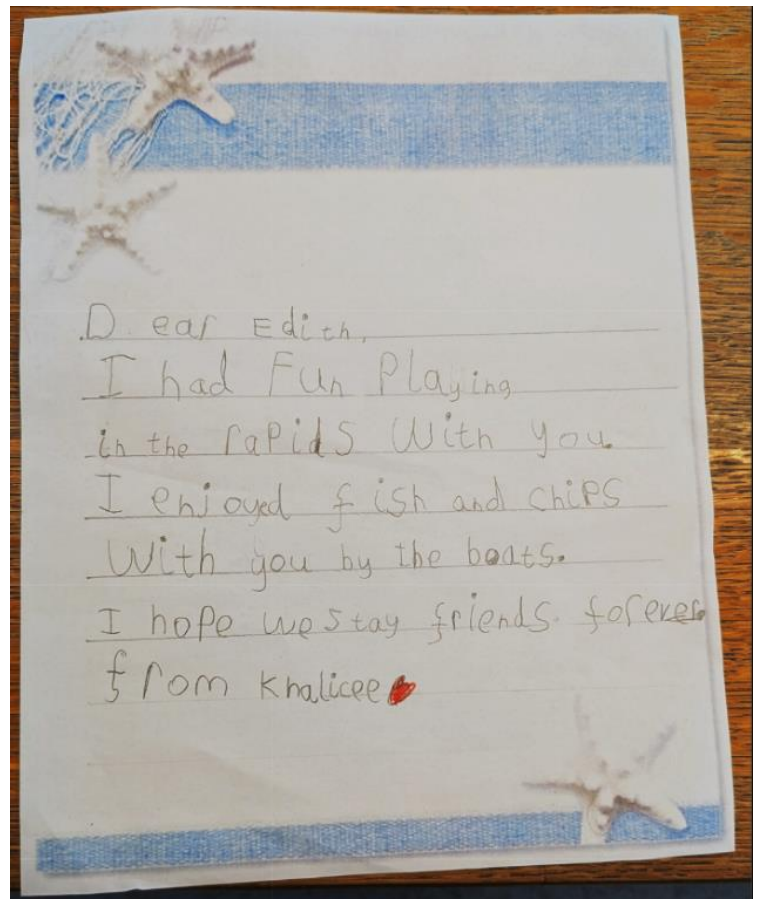 Dear Edith,
I had Fun Playing
in the rapids With you.
I enjoyed fish and chips
With you by the boats.
I hope we stay friends forever.
from Khalicee